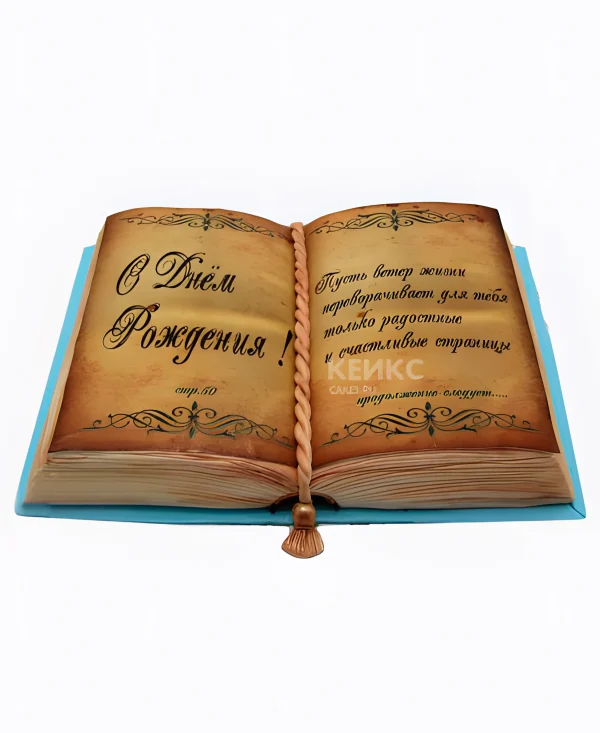 С Днём
Рождения !
стр.50
Пусть ветер жизни
переворачивает для тебя
только радостные
и счастливые страницы
продолжение следует....
КЕИКС
CAKES.RU